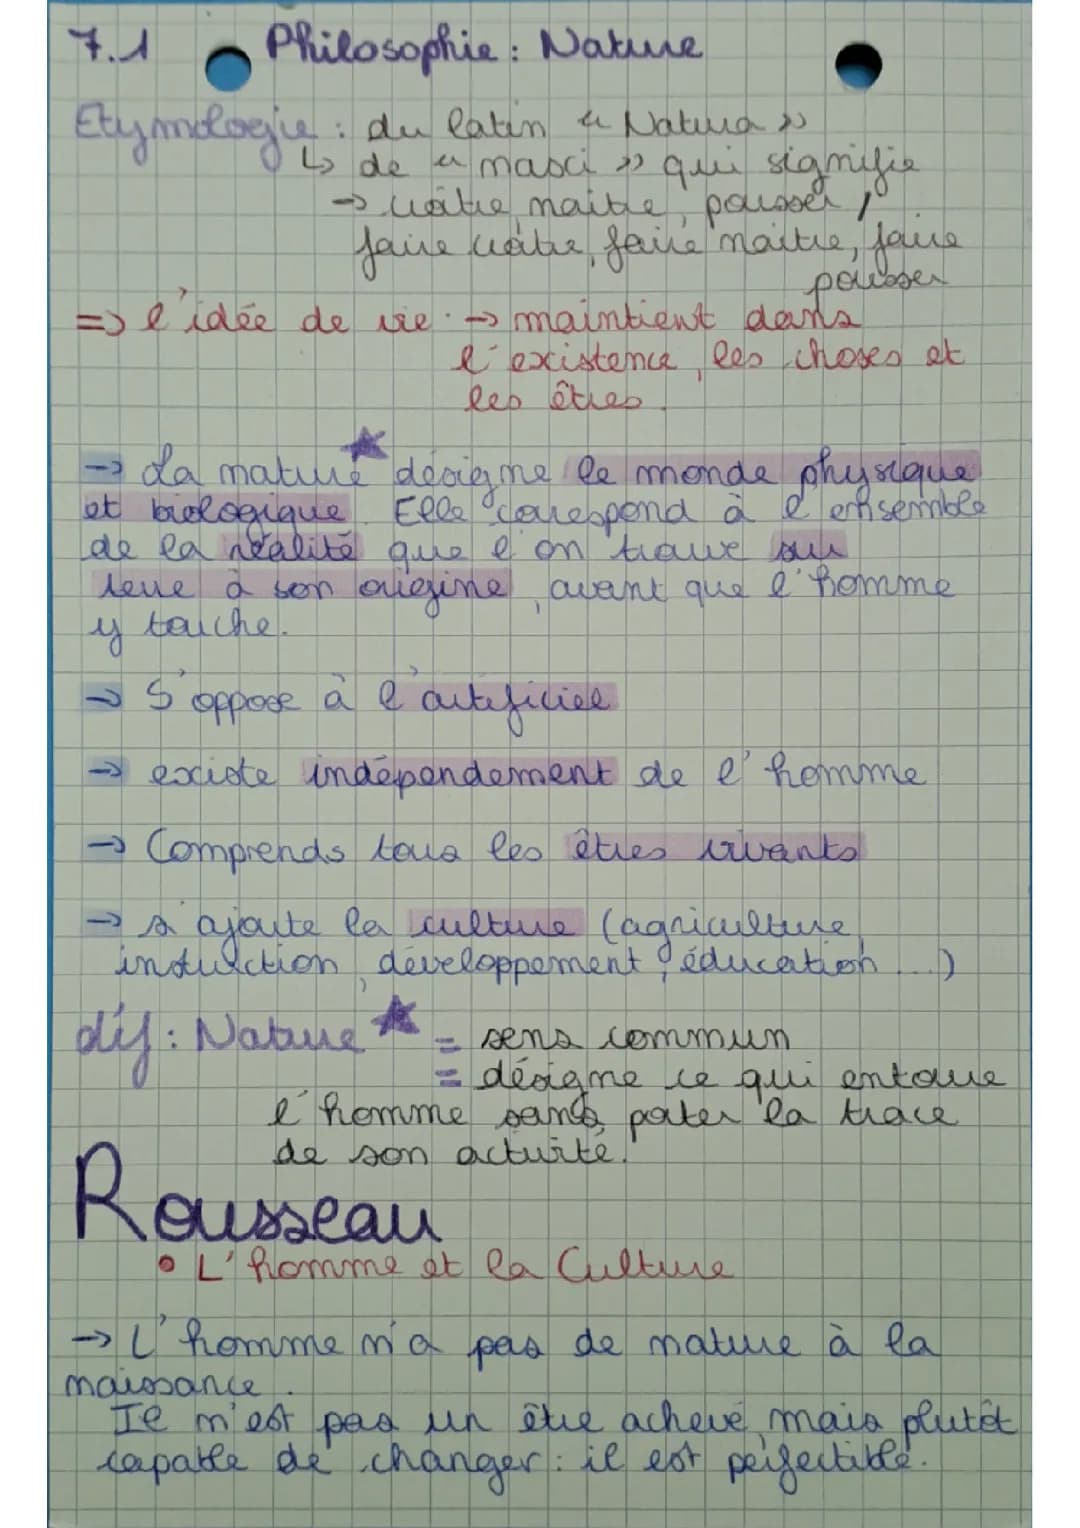 7.1 Philosophie : Nature
Etymologie : du latin « Natura »
↳ de « nasci » qui signifie
→ croître, naître, pousser,
faire croître, faire naître, faire
pousser
=> l'idée de vie. → maintient dans
l'existence, les choses et
les êtres.
→ La nature* désigne le monde physique
et biologique. Elle correspond à l'ensemble
de la réalité que l'on trouve sur
terre à son origine, avant que l'homme
y touche.
→ S'oppose à l'artificiel
→ existe indépendement de l'homme
→ Comprends tous les êtres vivants
→ s'ajoute la culture (agriculture,
instruction, développement, éducation ...)
déf : Nature* = sens commun
= désigne ce qui entoure
l'homme sans porter la trace
de son activité.
Rousseau
• L'homme et la Culture
→ L'homme n'a pas de nature à la
naissance.
Il n'est pas un être achevé, mais plutôt
capable de changer : il est perfectible.